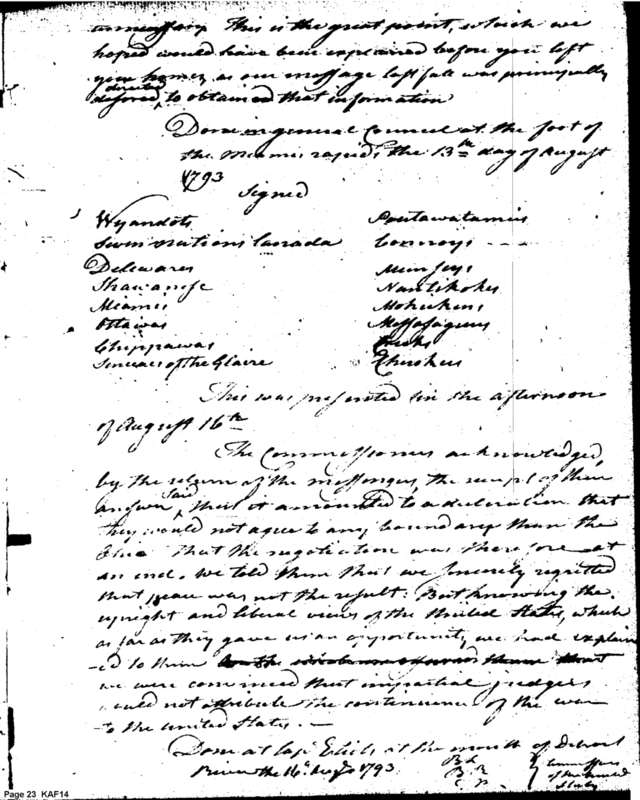 unnecessary. This is the great point, which we
hoped would have been explained before you left
your homes, as our message last fall was principally
directed
desired, to obtained that information
Done in general Council at the foot of
the Miamis rapids the 13th day of August
1793
Signed
Wyandots Poutawatamies
Seven nations Canada Connoys - - -
Delewares Munseys
Shawanese Nantikokes
Miamis Mohickens
Ottawas Messasagues
Chippawas Creeks
Senecas of the Glaize Cherokees
This was presented in the afternoon
of August 16th
The Commissioners acknowledged,
by the return of the messenger, the receipt of their
said
answer, that it amounted to a declaration that
they would not agree to any boundary than the
Ohio That the negotiation was therefore at
an end. We told them that we sincerely regretted
that peace was not the result. But knowing the
upright and liberal views of the United States, which
as far as they gave us an opportunity, we had explain
-ed to them
we were convinced that impartial judges
would not attribute the continuance of the war
-to the United States. -
Done at Cap. Elliots at the mouth of Detroit
River the 16th Augt. 1793. B L
B R
C P
Commissrs
of the United
States
Page 23 KAF14